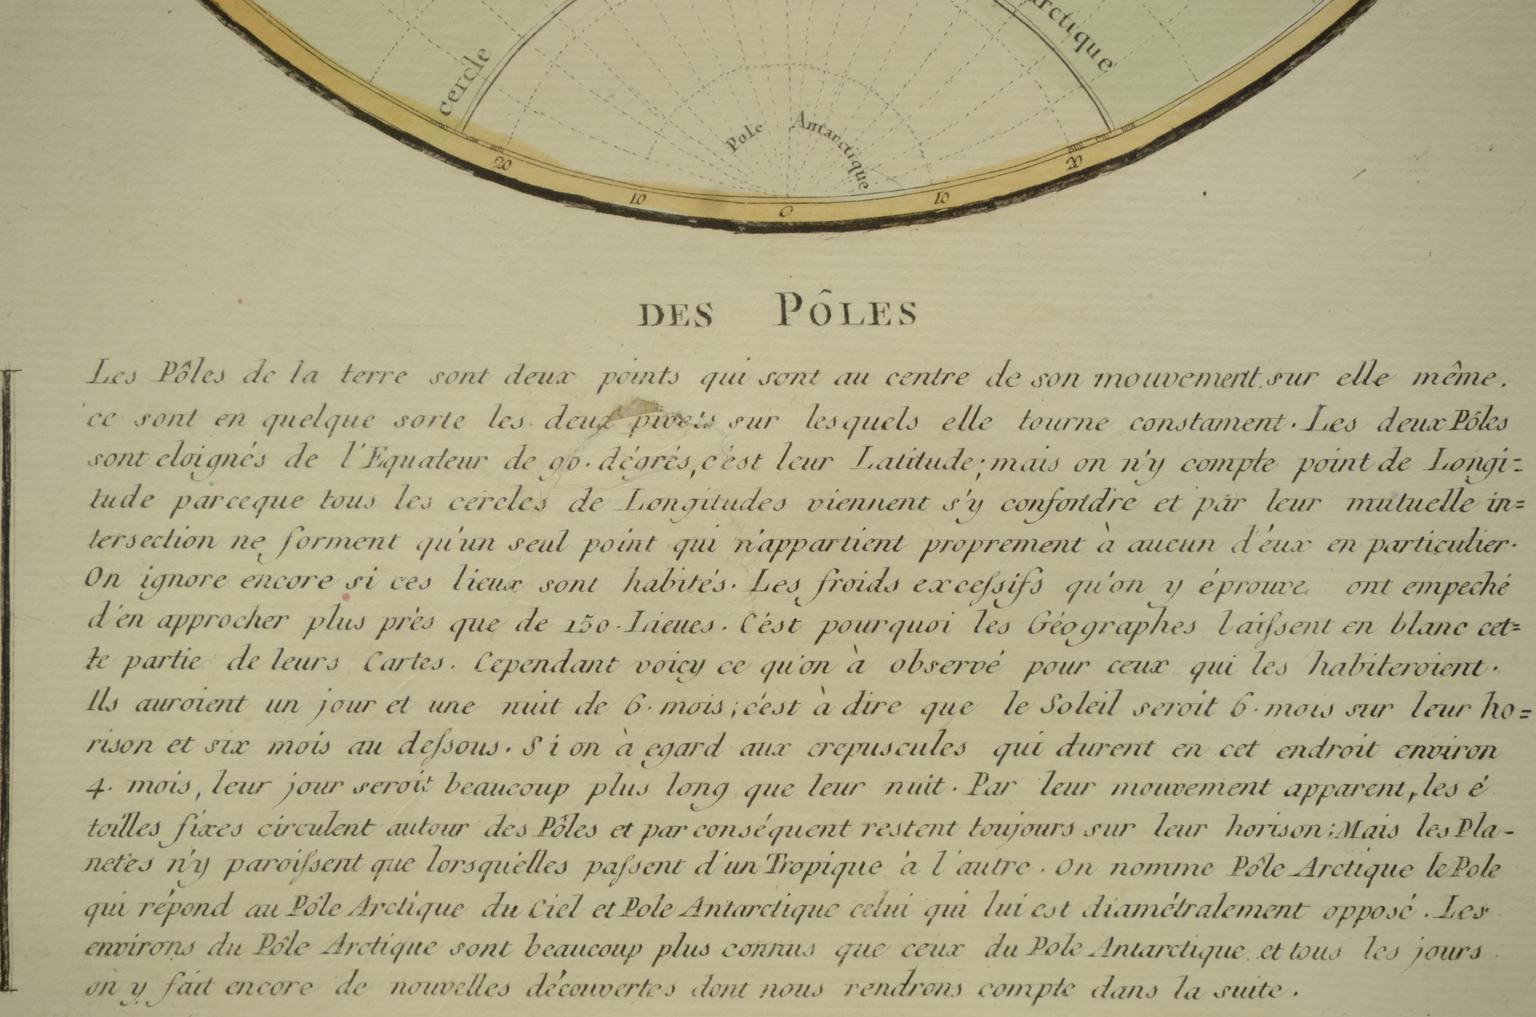 cercle
rctique
Pole Antarctique
20
10
0
10
20
DES PÔLES
Les Pôles de la terre sont deux points qui sont au centre de son mouvement sur elle même.
ce sont en quelque sorte les deux pivots sur lesquels elle tourne constament. Les deux Pôles
sont eloignés de l'Equateur de 90. dégrés, c'est leur Latitude; mais on n'y compte point de Longi=
tude parceque tous les cercles de Longitudes viennent s'y confondre et par leur mutuelle in=
tersection ne forment qu'un seul point qui n'appartient proprement à aucun d'éux en particulier.
On ignore encore si ces lieux sont habités. Les froids exceſsifs qu'on y éprouve ont empeché
d'en approcher plus près que de 150. Lieues. C'ést pourquoi les Géographes laiſsent en blanc cet=
te partie de leurs Cartes. Cependant voicy ce qu'on à observé pour ceux qui les habiteroient.
Ils auroient un jour et une nuit de 6. mois; c'ést à dire que le Soleil seroit 6. mois sur leur ho=
rison et six mois au deſsous. Si on à egard aux crepuscules qui durent en cet endroit environ
4. mois, leur jour seroit beaucoup plus long que leur nuit. Par leur mouvement apparent, les é
toilles fixes circulent autour des Pôles et par conséquent restent toujours sur leur horison; Mais les Pla-
netes n'y paroiſsent que lorsqu'elles paſsent d'un Tropique à l'autre. On nomme Pôle Arctique le Pole
qui répond au Pôle Arctique du Ciel et Pole Antarctique celui qui lui est diamétralement opposé. Les
environs du Pôle Arctique sont beaucoup plus connus que ceux du Pole Antarctique et tous les jours
on y fait encore de nouvelles découvertes dont nous rendrons compte dans la suite.